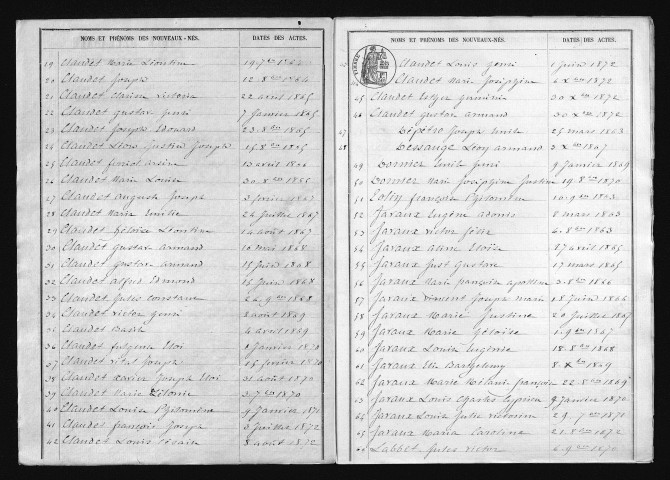 NOMS ET PRÉNOMS DES NOUVEAUX-NÉS. DATES DES ACTES.
19 Claudet Marie Léontine 19 7bre 1864
20 Claudet Joseph 12 8bre 1864
21 Claudet Clarisse Victoire 22 avril 1865
22 Claudet Gustave 7 Janvier 1865
23 Claudet Joseph Edouard 23 8bre 1865
24 Claudet Léon Justin Joseph 15 8bre 1865
25 Claudet 13 avril 1866
26 Claudet Marie Louise 30
27 Claudet auguste Joseph 1867
28 Claudet Marie Emilie 24 Juillet 1867
29 Claudet Héloïse Léontine 14 août 1867
30 Claudet Gustave armand 10 mai 1868
31 Claudet Gustave armand 15 Juin 1868
32 Claudet alfred Edmond 15 Juin 1868
33 Claudet Jules Constant 9bre 1868
34 Claudet Victor Henri août 1869
35 Claudet 4 avril 1869
36 Claudet Eloi Janvier 1870
37 Claudet Vital Joseph 15 février 1870
38 Claudet Xavier Joseph Eloi 31 août 1870
39 Claudet Marie 3 7bre 1870
40 Claudet Louise Philomène 9 Janvier 1871
41 Claudet françois Joseph 3 Juillet 1872
42 Claudet Louis 8 août 1872
NOMS ET PRÉNOMS DES NOUVEAUX-NÉS. DATES DES ACTES.
Claudet Louis Henri 1 Juin 1872
Claudet Marie Joséphine 6 Xbre 1872
45 Claudet 30 Xbre 1872
46 Claudet Gustave armand 30 Xbre 1872
47 Joseph Emile 25 mars 1863
48 Dessauge Léon armand 3 Xbre 1867
49 Dornier Emile 9 Janvier 1869
50 Dornier Marie Joséphine Justine 19 8bre 1870
51 françois Philomène 10 9bre 1863
52 Javaux Eugène adonis 8 mars 1863
53 Javaux Victor félix 6 8bre 1863
54 Javaux Eloïse avril 1865
55 Javaux Just Gustave 17 mars 1865
56 Javaux Marie françoise apolline 3 8bre 1866
57 Javaux Vincent Joseph Marie 18 Juin 1866
58 Javaux Marie Justine 20 Juillet 1867
59 Javaux Marie Héloïse 1 9bre 1867
60 Javaux Louis Eugène 18 8bre 1868
61 Javaux Elie Barthélemy 8 Xbre 1869
62 Javaux Marie Mélanie françoise 22 8bre 1869
63 Javaux Louis Charles Cyprien 9 Janvier 1870
64 Javaux Louis Jules Victorin 29 7bre 1871
65 Javaux Maria Caroline 21 8bre 1872
66 Labbet Jules Victor 6 9bre 1870